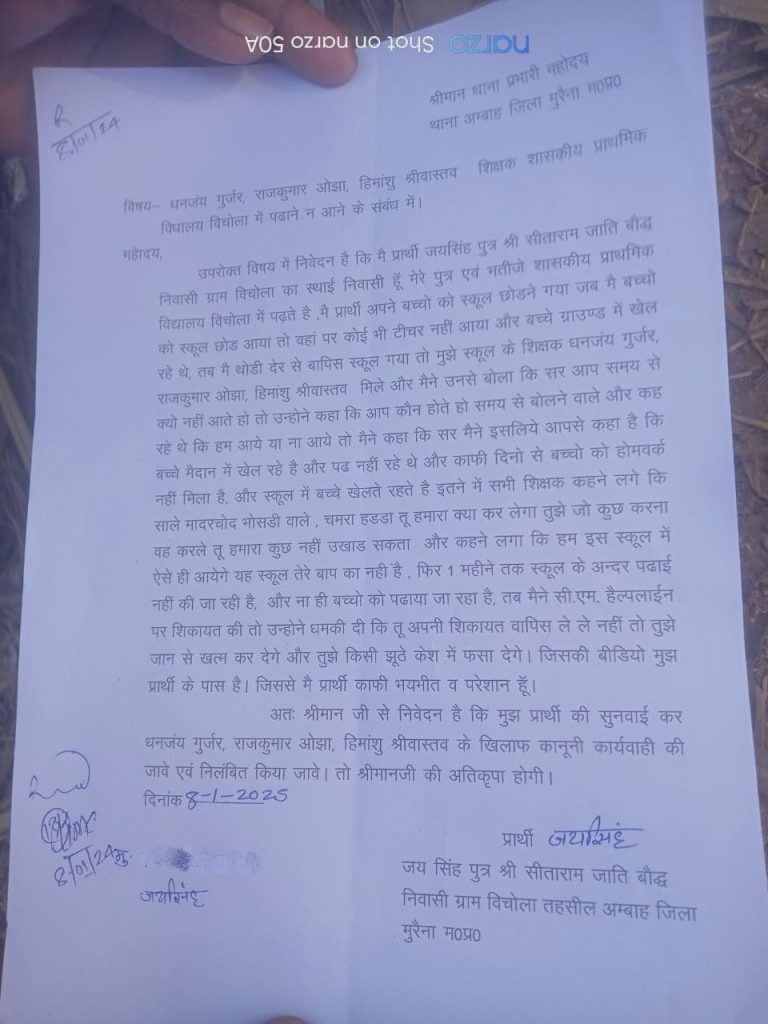 narzo Shot on narzo 50A
8/01/24
श्रीमान थाना प्रभारी महोदय
थाना अम्बाह जिला मुरैना म0प्र0
विषय– धनजंय गुर्जर, राजकुमार ओझा, हिमांशु श्रीवास्तव शिक्षक शासकीय प्राथमिक
विधालय विचोला में पढाने न आने के संबंध में।
महोदय,
उपरोक्त विषय में निवेदन है कि मै प्रार्थी जयसिंह पुत्र श्री सीताराम जाति बौद्ध
निवासी ग्राम विचोला का स्थाई निवासी हूॅ मेरे पुत्र एवं भतीजे शासकीय प्राथमिक
विद्यालय विचोला में पढ़ते है ,मै प्रार्थी अपने बच्चो को स्कूल छोडने गया जब मै बच्चो
को स्कूल छोड आया तो वहां पर कोई भी टीचर नहीं आया और बच्चे ग्राउण्ड में खेल
रहे थे, तब मै थोडी देर से बापिस स्कूल गया तो मुझे स्कूल के शिक्षक धनजंय गुर्जर,
राजकुमार ओझा, हिमांशु श्रीवास्तव मिले और मैने उनसे बोला कि सर आप समय से
क्यो नहीं आते हो तो उन्होने कहा कि आप कौन होते हो समय से बोलने वाले और कह
रहे थे कि हम आये या ना आये तो मैने कहा कि सर मैने इसलिये आपसे कहा है कि
बच्चे मैदान में खेल रहे है और पढ नहीं रहे थे और काफी दिनो से बच्चो को होमवर्क
नहीं मिला है, और स्कूल में बच्चे खेलते रहते है इतने में सभी शिक्षक कहने लगे कि
साले मादरचोद भोसडी वाले , चमरा हडडा तू हमारा क्या कर लेगा तुझे जो कुछ करना
वह करले तू हमारा कुछ नहीं उखाड सकता और कहने लगा कि हम इस स्कूल में
ऐसे ही आयेगे यह स्कूल तेरे बाप का नही है , फिर 1 महीने तक स्कूल के अन्दर पढाई
नहीं की जा रही है, और ना ही बच्चो को पढाया जा रहा है, तब मैने सी.एम. हैल्पलाईन
पर शिकायत की तो उन्होने धमकी दी कि तू अपनी शिकायत वापिस ले ले नहीं तो तुझे
जान से खत्म कर देगे और तुझे किसी झूठे केश में फसा देगे। जिसकी बीडियो मुझ
प्रार्थी के पास है। जिससे मै प्रार्थी काफी भयभीत व परेशान हूॅ।
अतः श्रीमान जी से निवेदन है कि मुझ प्रार्थी की सुनवाई कर
धनजंय गुर्जर, राजकुमार ओझा, हिमांशु श्रीवास्तव के खिलाफ कानूनी कार्यवाही की
जावे एवं निलंबित किया जावे। तो श्रीमानजी की अतिकृपा होगी।
दिनांक 8-1-2025
प्रार्थी जयसिंह
8/01/24 मु.
जय सिंह पुत्र श्री सीताराम जाति बौद्ध
जयसिंह
निवासी ग्राम विचोला तहसील अम्बाह जिला
मुरैना म0प्र0